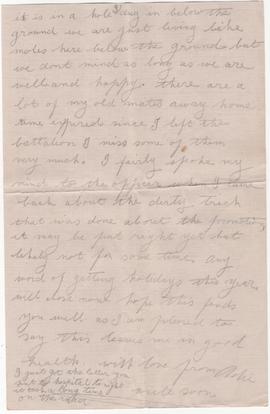 it is in a hole dug in below the
ground we are just living like
moles here below the ground but
we dont mind as long as we are
well and happy. there are a
lot of my old mates away home
time expired since I left the
battalion I miss some of them
very much. I fairly spoke my
mind to the officer when I came
back about the dirty trick
that was done about the
it may be put right yet but
likely not for some time any
word of getting holidays this year
will close now hope this finds
you well as I am pleased to
say this leaves me in good
health with love from
write soon
I just got the letter you
sent to hospital to night
it took a long time
on the road